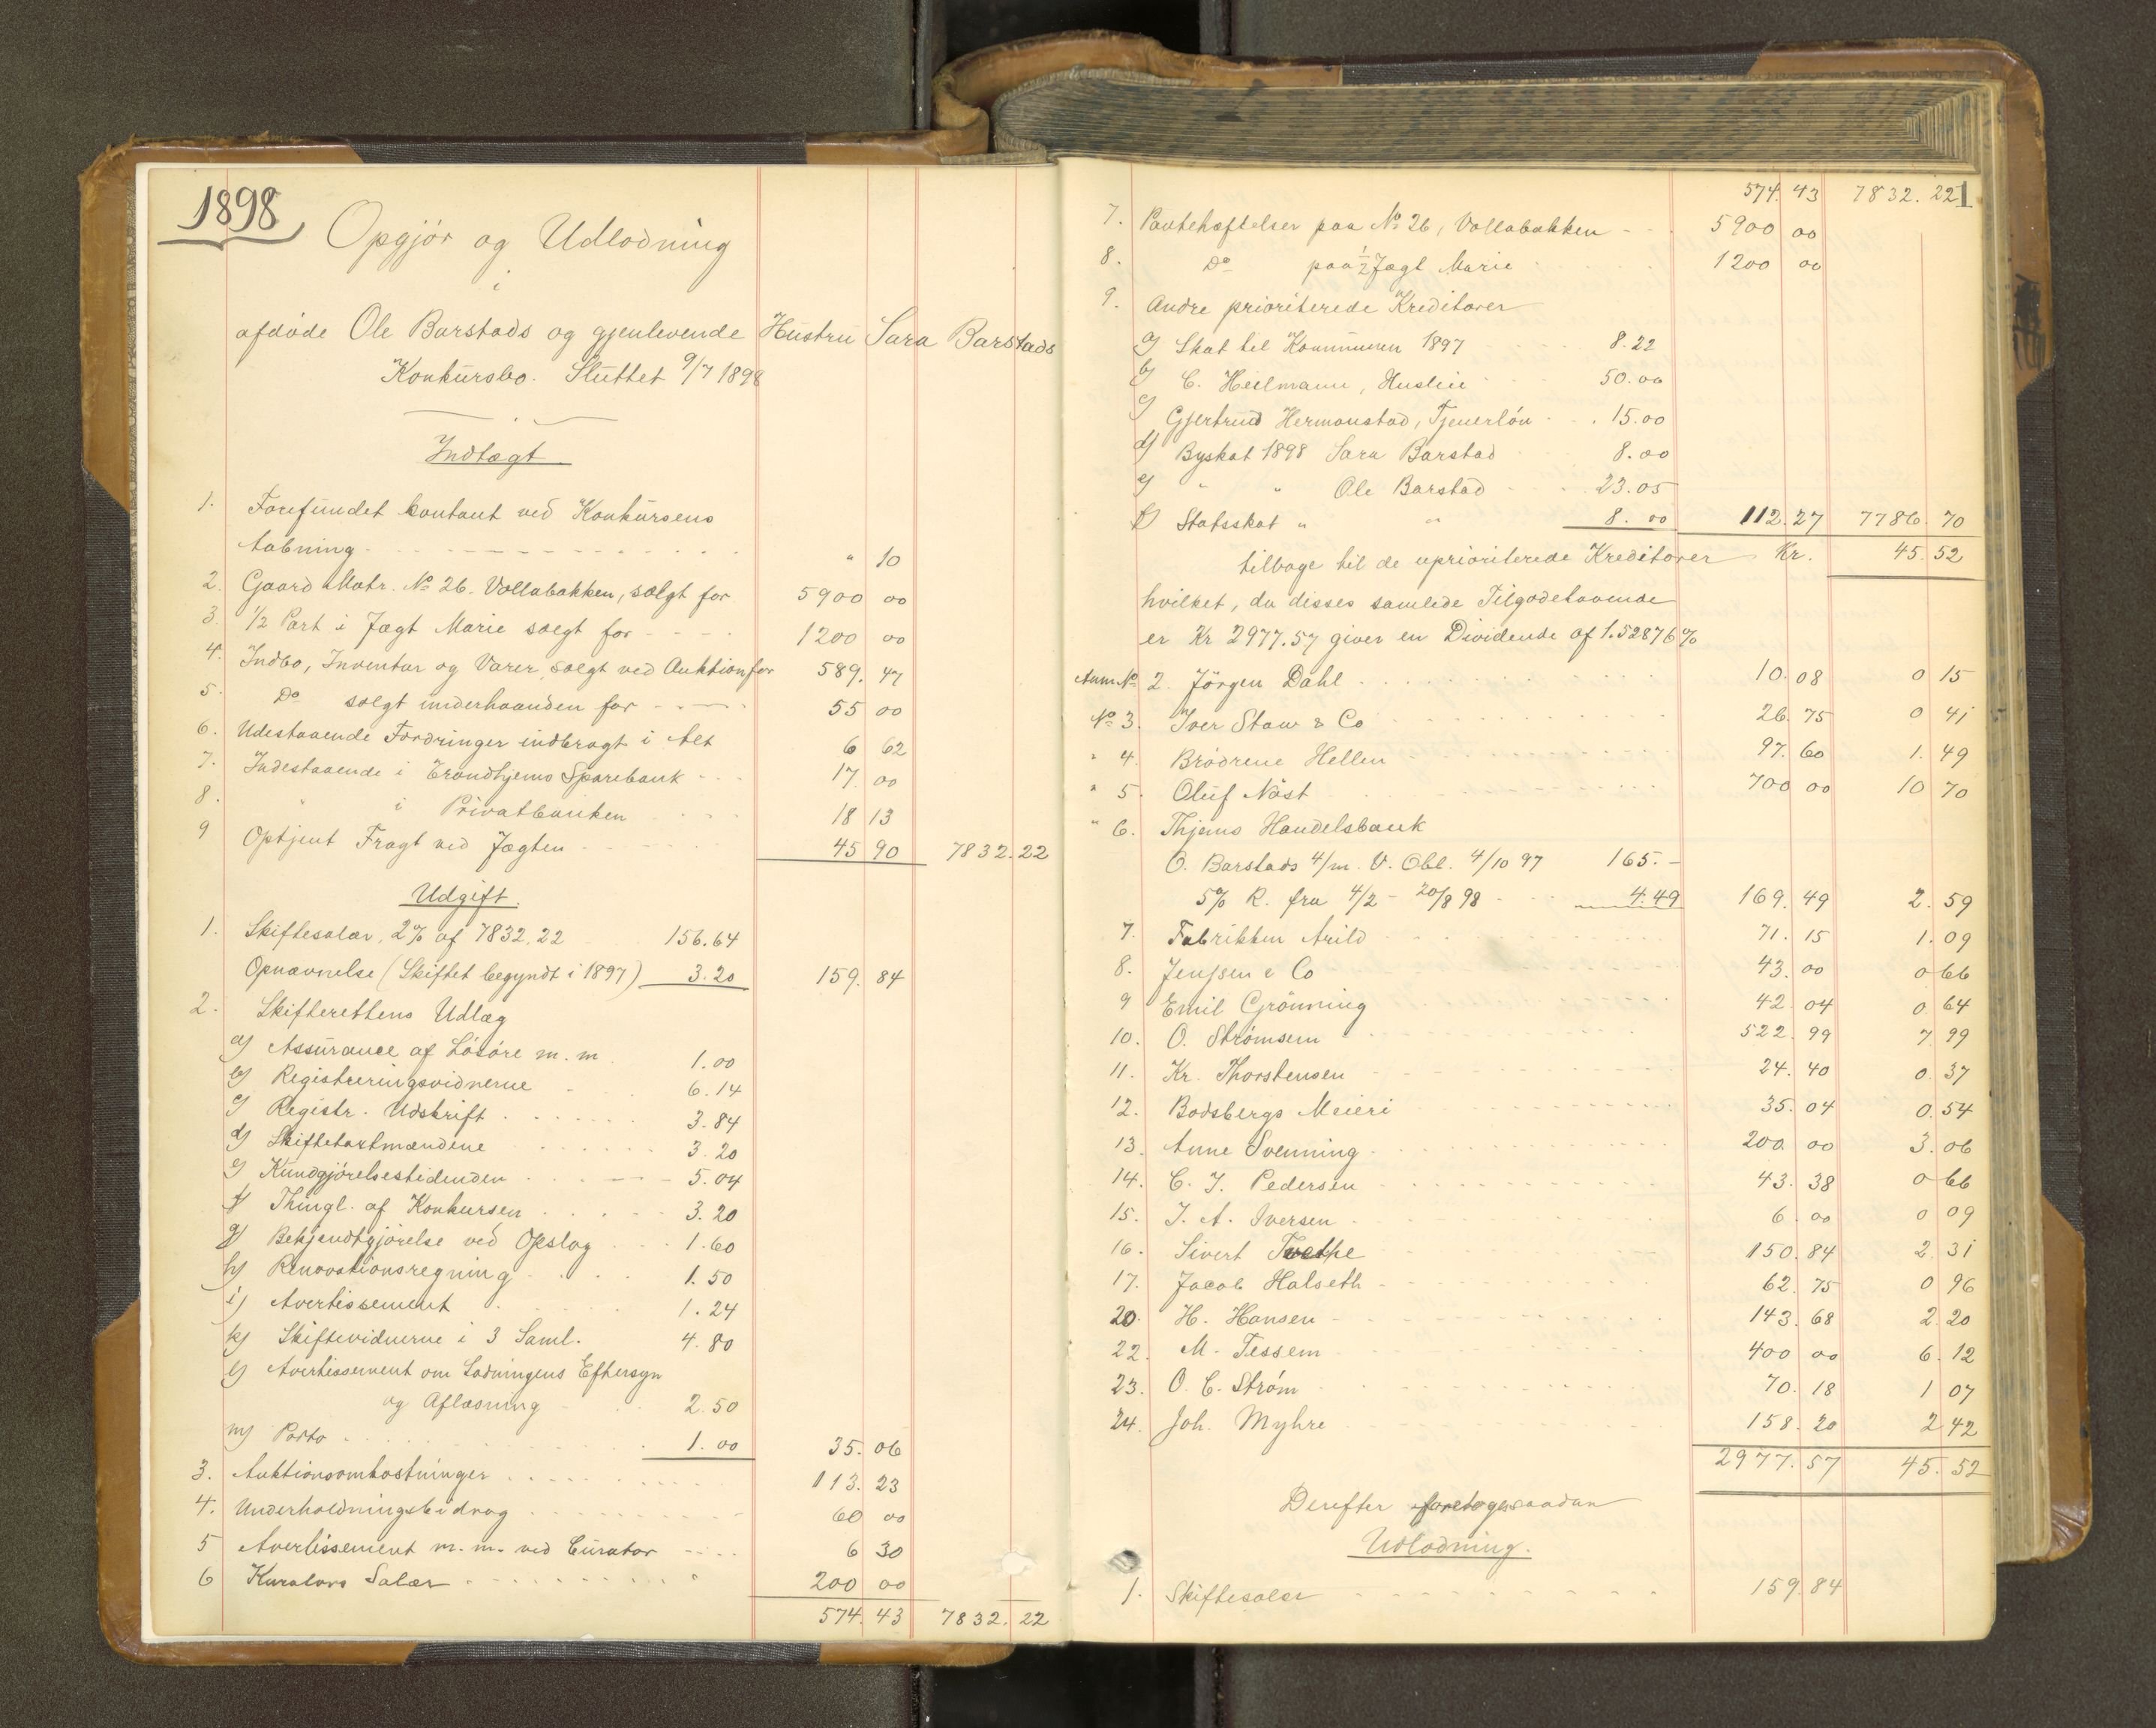 1898
Opgjör og Udlodning
i
afdöde Ole Barstads og gjenlevende Hustru Sara Barstads
Konkursbo. Sluttet 9/7 1898
Indtægt
1. Forefundet kontant ved Konkursens
Aabning " 10
2. Gaard Matr. No 26. Vollabakken, solgt for 5900 00
3. 1/2 Part i Jægt Marie solgt for 1200 00
4. Indbo, Inventar og Varer, solgt ved Auktion for 589. 47
5. Do solgt underhaanden for 55 00
6. Udestaaende Fordringer indbragt i Alt 6 62
7. Indestaaende i Trondhjems Sparebank 17 00
8. " i Privatbanken 18 13
9 Optjent Fragt ved Jægten 45 90 7832.22
Udgift.
1. Skiftesalær, 2% af 7832.22 156.64
Opnævnelse (Skiftet begyndt i 1897) 3.20 159. 84
2. Skifterettens Udlæg
a) Assurance af Lösöre m.m 1.00
b) Registreringsvidnerne 6.14
c) Registr. Udskrift 3.84
d) Skiftetaxtmændene 3.20
e) Kundgjörelsestidenden 5.04
f) Thingl. af Konkursen 3.20
g) Bekjendtgjörelse ved Opslag 1.60
h) Renovationsregning 1.50
i) Avertissement 1.24
k) Skiftevidnerne i 3 Saml. 4.80
l) Avertissement om Lodningens Eftersyn
og Aflæsning 2.50
m) Porto 1.00 35.06
3. Auktionsomkostninger 113.23
4. Underholdningsbidrag 60 00
5 Avertissement m.m. ved Curator 6 30
6 Kurators Salær 200 00
574.43 7832.22
574.43 7832.22 1
7. Pantehæftelser paa No 26, Vollabakken 5900 00
8. Do paa 1/2 Jægt Marie 1200 00
9. Andre prioriterede Kreditorer
a) Skat til Kommunen 1897 8.22
b) C. Heilmann, Husleie 50.00
c) Gjertrud Hermanstad, Tjenerlön 15.00
d) Byskat 1898 Sara Barstad 8.00
e) " " Ole Barstad 23.05
f) Statsskat " " 8.00 112.27 7786.70
tilbage til de uprioriterede Kreditorer Kr. 45.52
hvilket, da disses samlede Tilgodehavende
er Kr 2977.57 giver en Dividende af 1.52876%
Anm. No 2. Jörgen Dahl 10.08 0 15
No 3. Iver Staw & Co 26.75 0 41
" 4. Brödrene Hellen 97.60 1.49
" 5. Oluf Näst 700 00 10 70
" 6. Thjems Handelsbank
O. Barstads 4/m. V. Obl. 4/10 97 165.-
5% R. fra 4/2 - 20/8 98 4.49 169.49 2.59
7. Fabrikken Arild 71.15 1.09
8. Jenssen & Co 43.00 0 66
9 Emil Grönning 42.04 0.64
10. O. Strömsem 522.99 7.99
11. Kr. Thorstensen 24.40 0.37
12. Bodsbergs Meieri 35.04 0.54
13. Anne Svenning 200.00 3.06
14. C. J. Pedersen 43.38 0 66
15. J. A. Iversen 6.00 0 09
16. Sivert Tvethe 150.84 2.31
17. Jacob Halseth 62.75 0 96
20. H. Hansen 143.68 2.20
22. M. Tessem 400 00 6.12
23. O. C. Ström 70.18 1 07
24. Joh. Myhre 158.20 2 42
2977.57 45.52
Derefter foretoges saadan
Udlodning.
1. Skiftesalær 159.84